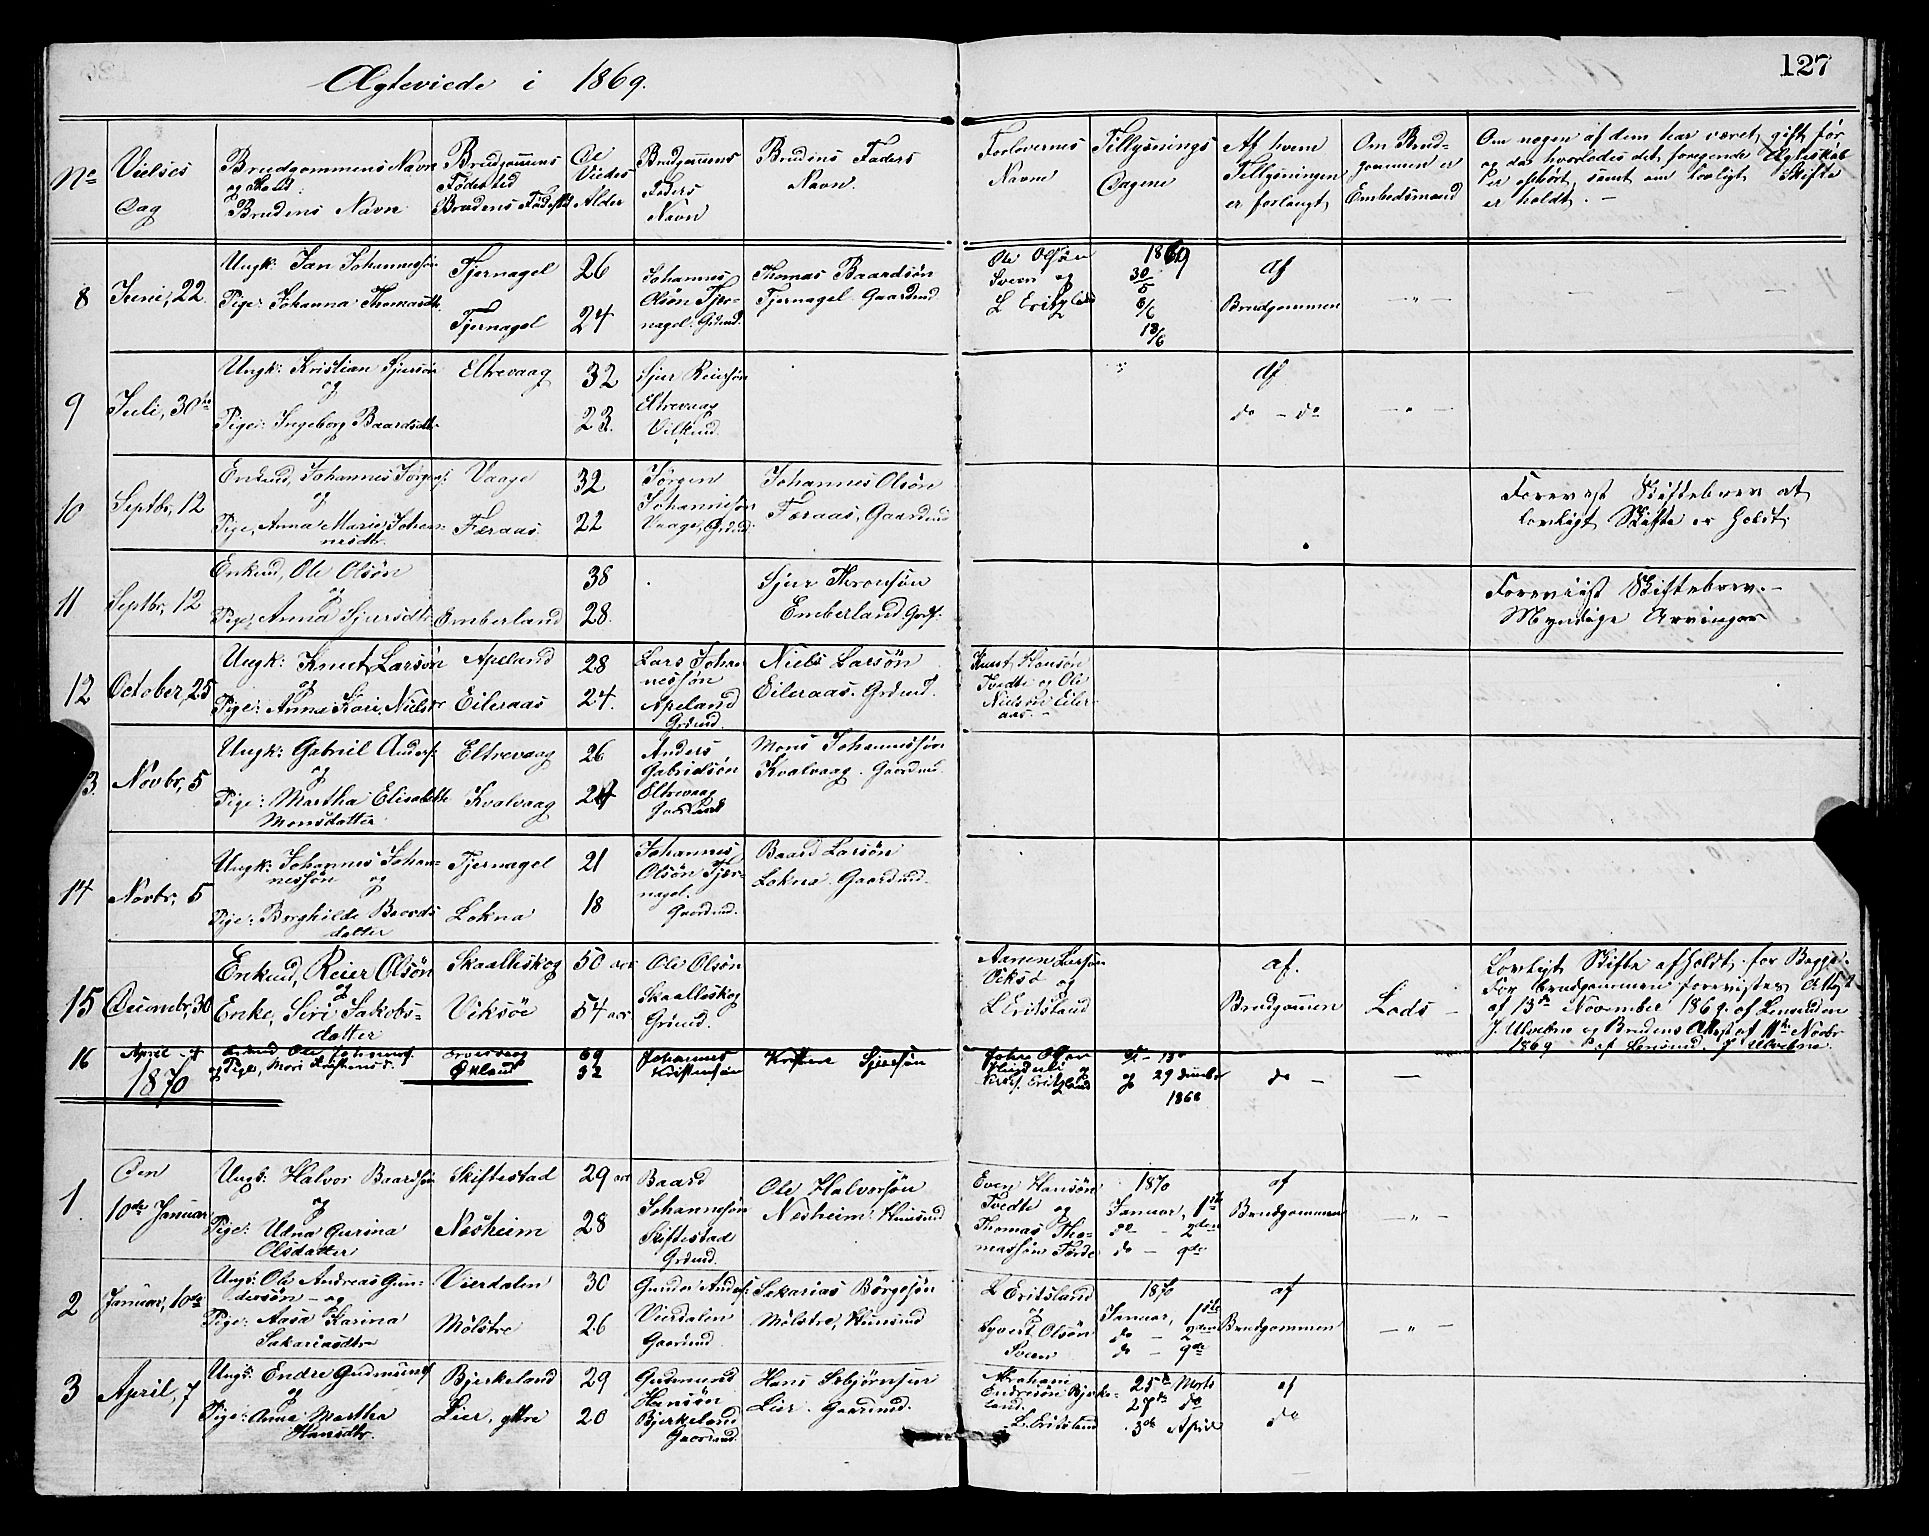 Ægteviede i 1869.
127
No
Vielses
Dag
Brudgommens Navn
og Stand
Brudens Navn
Brudgommens
Fødested
Brudens Fødested
De
Viedes
Alder
Brudgommens
Faders
Navn
Brudens Faders
Navn
Forlovernes
Navne
Tillysnings
Dagene
Af hvem
Tillysningen
er forlangt
Om Brud-
gommen er
Embedsmand
Om nogen af dem har været gift før
og da hvorledes det foregende Ægteskab
er ophørt, samt om lovligt Skifte
er holdt. —
8
Juni, 22.
Ungk: Jan Johannessøn
Pige: Johanna Thomasdtr.
Tjernagel
Tjernagel
26
24
Johannes
Olsøn Tjer-
nagel. Grdmd.
Thomas Baardsøn
Tjernagel. Gaardmd.
Ole Olsøn
Sveen og
L
1869
30/5
6/6
13/6
af
Brudgommen
— " —
9
Juli, 30te
Ungk: Kristian Sjursøn
og
Pige: Ingeborg Baardsdtr.
Eltrevaag
32
23.
Sjur Reiersøn
Eltrevaag
af
do — do
— " —
10
Septbr, 12
Enkmd, Johannes Jørgens:
og
Pige, Anna Marie Johan-
nesdtr.
Vaage
Færaas.
32
22
Jørgen
Johannessøn
Vaage, Grdmd.
Johannes Olsøn
Færaas, Gaardmd.
Forevist Skiftebrev at
lovligt Skifte er holdt.
11
Septbr, 12
Enkmd, Ole Olsøn
og
Pige, Anna Sjursdtr.
Emberland
38
28.
Sjur Thronsøn
Emberland.
Foreviist Skiftebrev. —
Myndige Arvinger
12
October, 25
Ungk: Knut Larsøn
og
Pige: Anna Kari Nielsdtr
Apeland
Eileraas
28
24.
Lars Johan
nessøn
Apeland
Grdmd.
Niels Larsøn
Eileraas. Grdmd.
Knut Hansøn
Tvedte og Ole
Nielsen Eiler-
aas. —
13.
Novbr, 5
Ungk: Gabriel Anders:
og
Pige: Martha Elisabeth
Monsdatter
Eltrevaag
Kvalvaag
26
24
Anders
Gabrielsøn
Eltrevaag
Gaardmd
Mons Johannessøn
Kvalvaag. Gaardmd.
14
Novbr, 5
Ungk: Johannes Johan-
nessøn og
Pige: Borghilde Baards
datter
Tjernagel
Lokna
21
18
Johannes
Olsøn Tjer-
nagel.
Gaardmd.
Baard Larsøn
Lokna. Gaardmd.
15
Decembr, 30
Enkmd, Reier Olsøn
og
Enke, Siri Jakobs-
datter
Skaalleskog
Viksøe
50 aar
54 aar
Ole Olsøn
Skaalleskog
Grdmd.
Larsøn
Viksø og
L Eritsland
af.
Brudgommen
—
Lovligt Skifte afholdt for Begge.
For brudgommen forevistes Attest
af 13de November 1869 af Lensmden
J Ulvebne og Brudens Attest af 11te Novbr
1869 af Lensmd. J Ulvebne.
16
April
1870
Ole Johannes:
og Pige,
Økland
69
32
Johannes
Kristensøn
Sjursøn
og
og 29 Decmbr
1868
do —
—
1
Den
10de Januar
Ungk: Halvor Baardsøn
og
Pige: Udna Gurina
Olsdatter
Skiftestad
Nesheim
29 aar
28
Baard
Johannessøn
Skiftestad
Grdmd.
Ole Halvorsøn
Nesheim. Huusmd
Even Hansøn
Tvedte og
Thomas Tho-
massøn Førde
1870
Januar, 1ste
do — 2den
do — 9de
af
Brudgommen
— " —
2
Januar, 10de
Ungk: Ole Andreas Gun-
dersøn — og
Pige: Aasa Karina
Sakariasdtr
Vierdalen
Mølstre
30
26
Gunder Anders:
Vierdalen
Gaardmd.
Sakarias Børgesøn
Mølstre, Huusmd
L Eritsland
og
Syvert Olsøn
Sveen
1870
Januar, 1ste
do — 2den
do — 9de
af
Brudgommen
— " —
3
April, 7
Ungk: Endre Gudmunds
og
Pige: Anna Martha
Hansdtr.
Bjerkeland
Lier, yttre
29
20
Gudmund
Hansøn
Bjerkeland
Gaardmd.
Hans Asbjørnsen
Lier. Gaardmd.
Abraham
Endresøn Bjerke-
land.
L. Eritsland
25de Marts
27de do
3de April
af
do